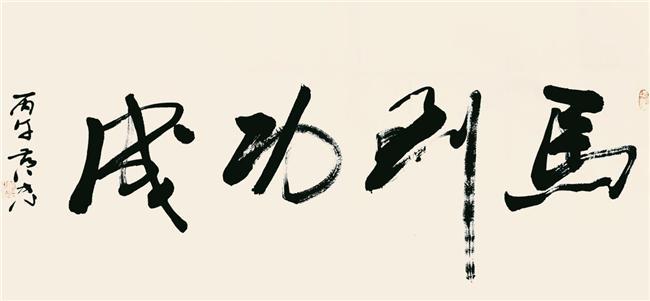 馬到功成
丙午